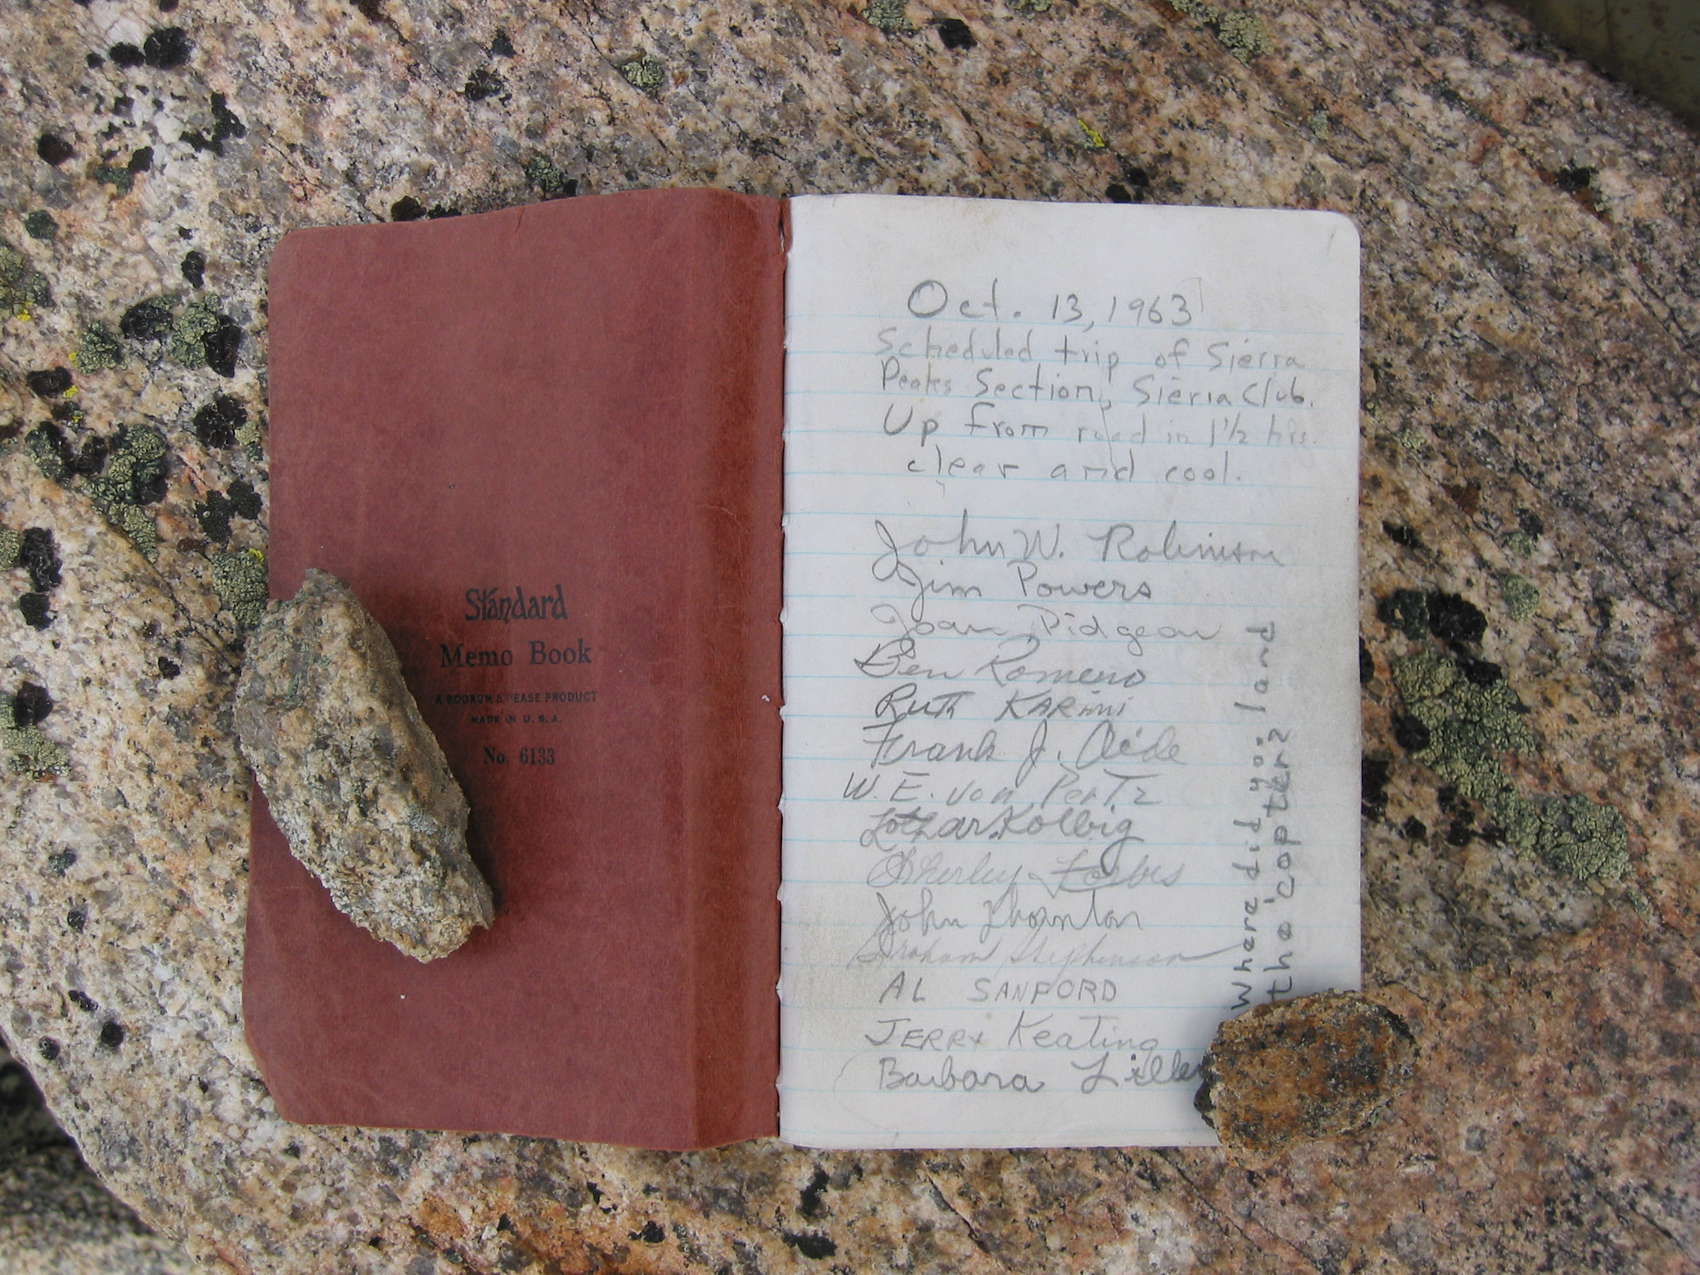 Standard
Memo Book
A BOORUM & PEASE PRODUCT
MADE IN U.S.A.
No. 6133
Oct. 13, 1963
Scheduled trip of Sierra
Peaks Section, Sierra Club.
Up from road in 1 1/2 hrs.
clear and cool.
John W. Robinson
Jim Powers
Joan Pidgeon
Ben Romero
Ruth KARIMI
Frank J.
W. E. von
Lothar Kolbig
Sherley Forbes
John Thornton
Graham Stephenson
AL SANFORD
JERRY Keating
Barbara Lilley
Where did you land
the 'copter?